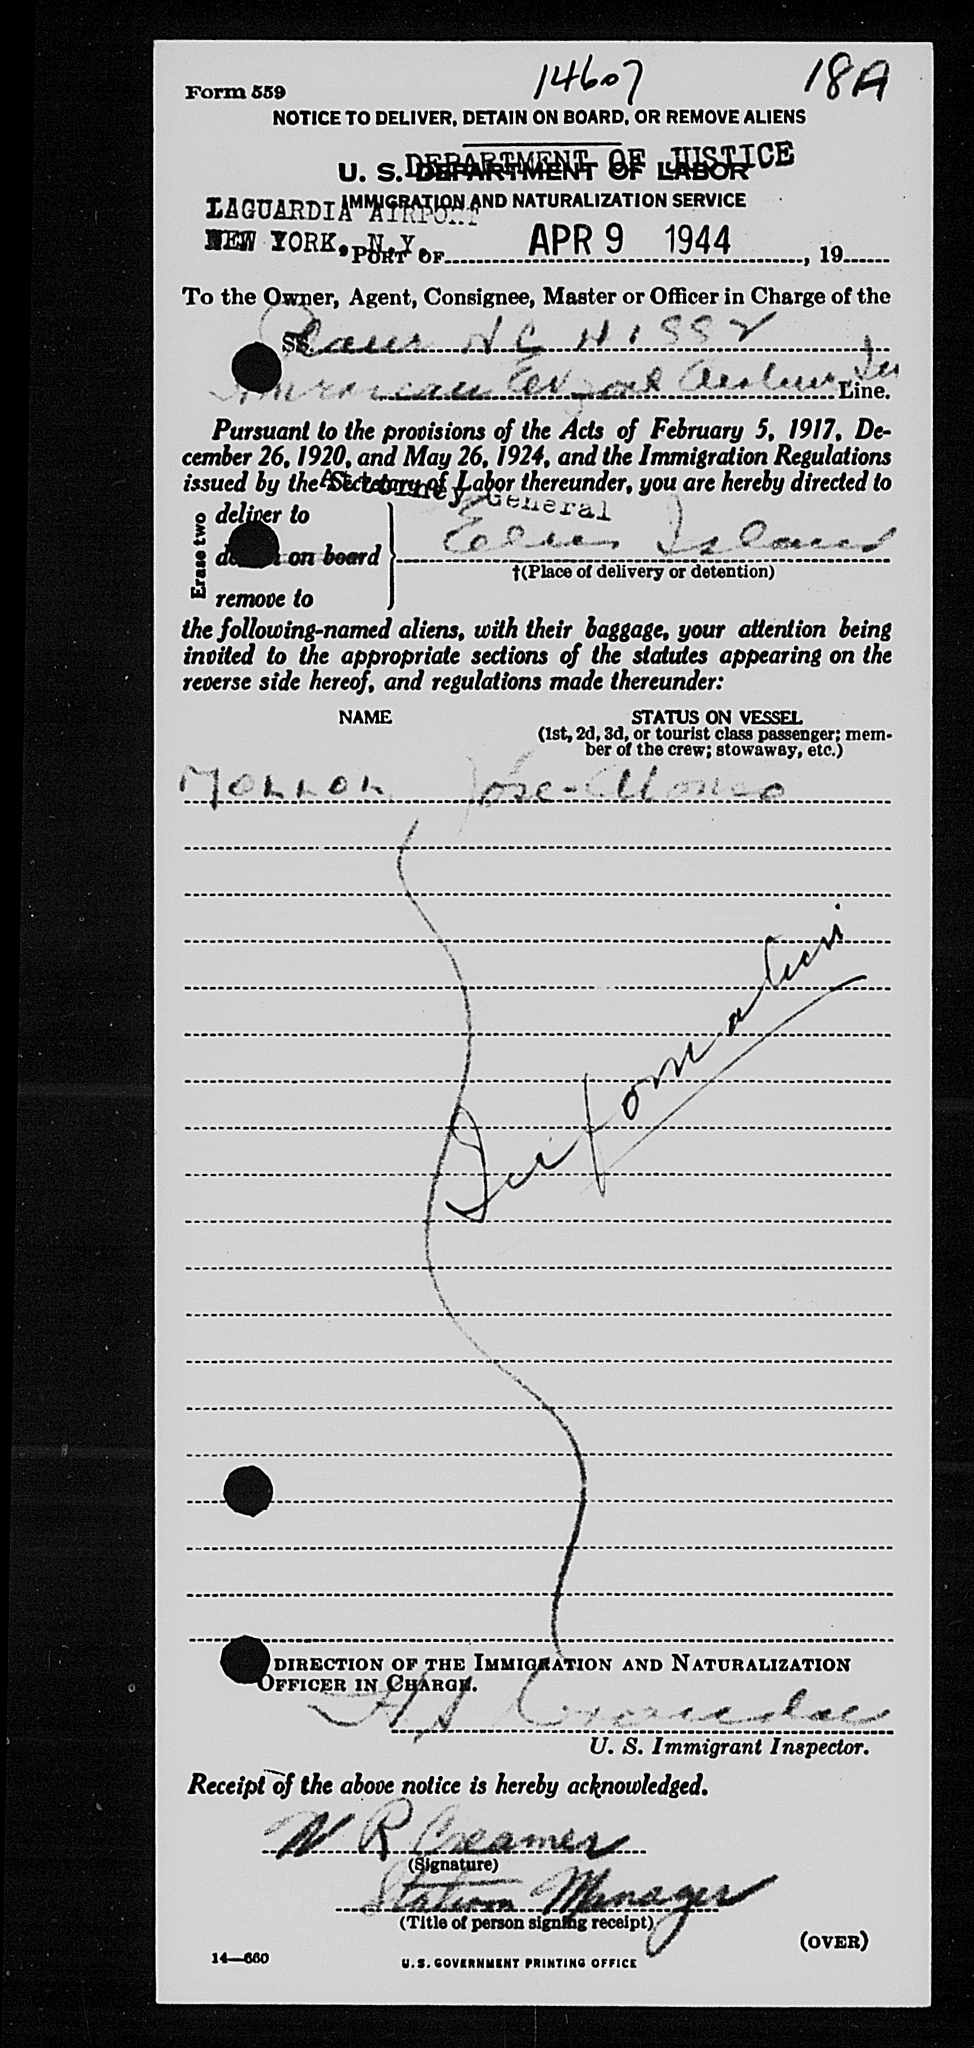 14607
18A
Form 559
NOTICE TO DELIVER, DETAIN ON BOARD, OR REMOVE ALIENS
DEPARTMENT OF JUSTICE
U. S. DEPARTMENT OF LABOR
IMMIGRATION AND NATURALIZATION SERVICE
LAGUARDIA AIRPORT
NEW YORK, N.Y.
PORT OF APR 9 1944, 19
To the Owner, Agent, Consignee, Master or Officer in Charge of the
SS.
American Export Airlines Line.
Pursuant to the provisions of the Acts of February 5, 1917, De-
cember 26, 1920, and May 26, 1924, and the Immigration Regulations
issued by the Secretary of Labor thereunder, you are hereby directed to
Attorney General
Erase two
deliver to
on board
remove to
Ellis Island
†(Place of delivery or detention)
the following-named aliens, with their baggage, your attention being
invited to the appropriate sections of the statutes appearing on the
reverse side hereof, and regulations made thereunder:
NAME
STATUS ON VESSEL
(1st, 2d, 3d, or tourist class passenger; mem-
ber of the crew; stowaway, etc.)
Jose-Alonso
DIRECTION OF THE IMMIGRATION AND NATURALIZATION
OFFICER IN CHARGE.
U. S. Immigrant Inspector.
Receipt of the above notice is hereby acknowledged.
W R Creamer
(Signature)
Station Manager
(Title of person signing receipt)
(OVER)
14—660
U. S. GOVERNMENT PRINTING OFFICE